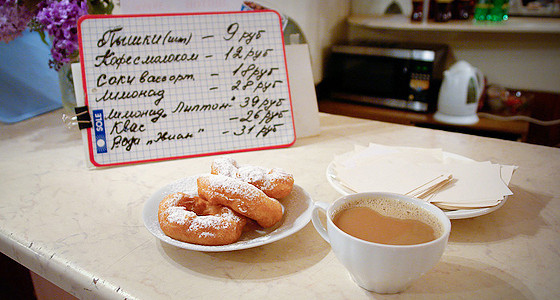 Пышки (шт) – 9 руб
Кофе с молоком – 12 руб
Соки в ассорт – 18 руб
Лимонад – 28 руб
Лимонад "Липтон" 39 руб
Квас – 26 руб
Вода – 31 руб
SOLE